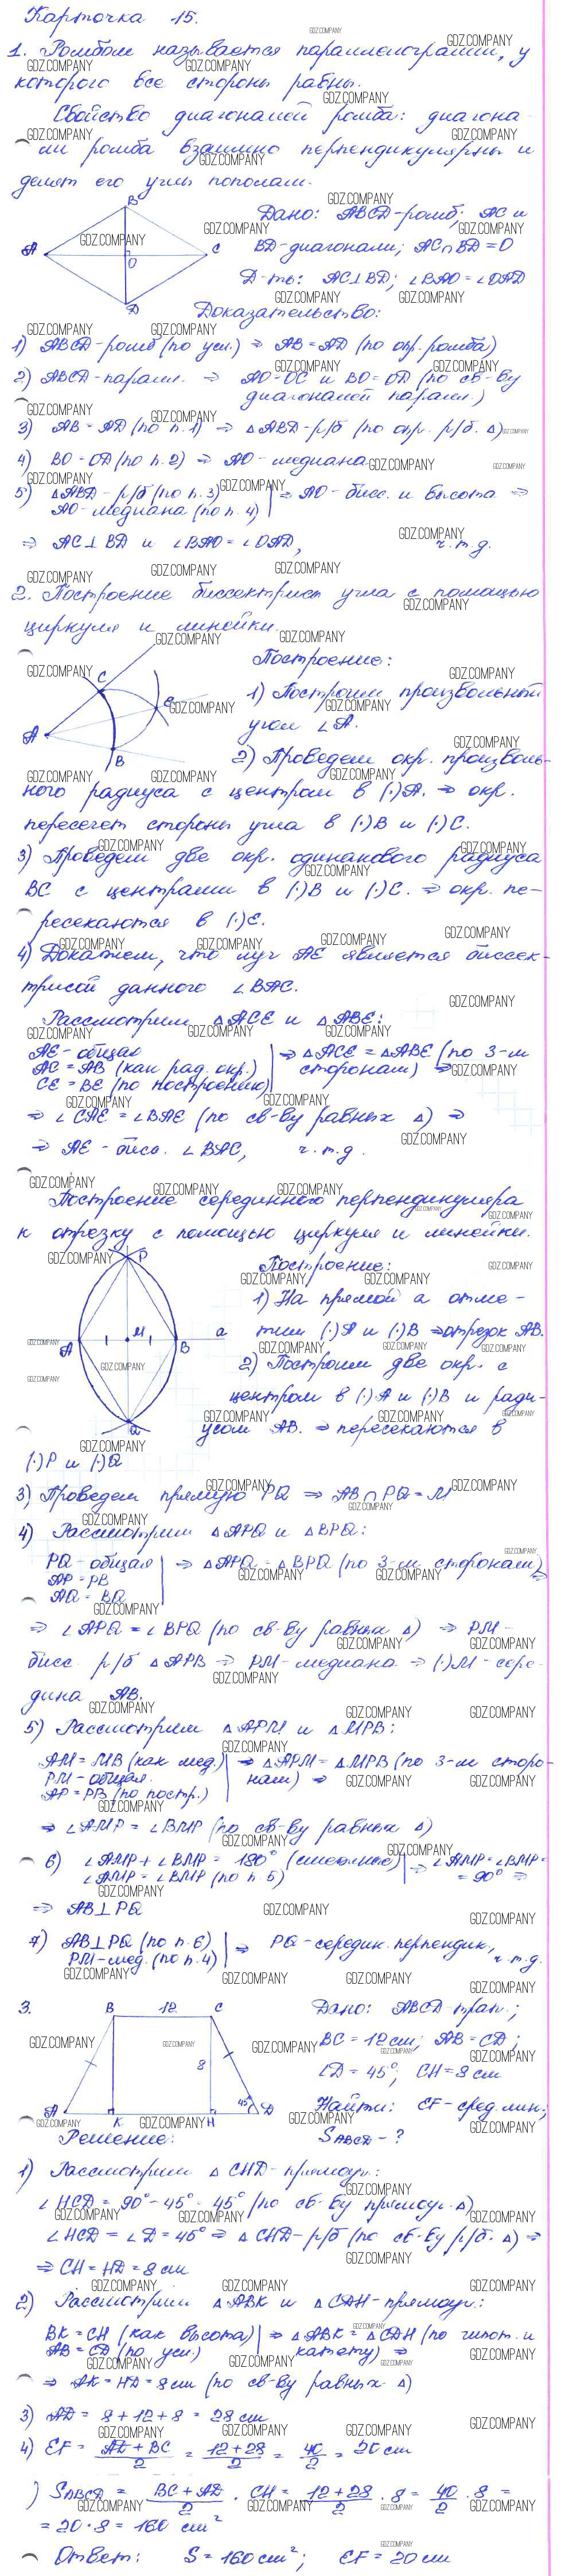 Карточка 15.
1. Ромбом называется параллелограмм, у
которого все стороны равны.
Свойство диагоналей ромба: диагона-
ли ромба взаимно перпендикулярны и
делят его углы пополам.
B
A
O
C
D
Дано: ABCD-ромб; AC и
BD-диагонали; AC∩BD=O
Д-ть: AC⊥BD; ∠BAO=∠OAD
Доказательство:
1) ABCD-ромб (по усл.) ⇒ AB=AD (по опр. ромба)
2) ABCD-паралл. ⇒ AO=OC и BO=OD (по св-ву
диагоналей паралл.)
3) AB=AD (по п.1) ⇒ △ABD-р/б (по опр. р/б. △)
4) BO=OD (по п.2) ⇒ AO-медиана
5) △ABD-р/б (по п.3) ⇒ AO-бисс. и высота ⇒
AO-медиана (по п.4)
⇒ AC⊥BD и ∠BAO=∠OAD, ч.т.д.
2. Построение биссектрисы угла с помощью
циркуля и линейки.
C
E
A
B
Построение:
1) Построим произвольный
угол ∠A.
2) Проведем окр. произволь-
ного радиуса с центром в (·)A. ⇒ окр.
пересечет стороны угла в (·)B и (·)C.
3) Проведем две окр. одинакового радиуса
BC с центрами в (·)B и (·)C. ⇒ окр. пе-
ресекаются в (·)E.
4) Докажем, что луч AE является биссек-
трисой данного ∠BAC.
Рассмотрим △ACE и △ABE:
AE-общая ⇒ △ACE=△ABE (по 3-м
AC=AB (как рад. окр.) сторонам) ⇒
CE=BE (по построению)
⇒ ∠CAE=∠BAE (по св-ву равных △) ⇒
⇒ AE-бисс. ∠BAC, ч.т.д.
Построение серединного перпендикуляра
к отрезку с помощью циркуля и линейки.
P
A
M
B
a
Q
Построение:
1) На прямой a отме-
тим (·)A и (·)B ⇒ отрезок AB.
2) Построим две окр. с
центром в (·)A и (·)B и ради-
усом AB. ⇒ пересекаются в
(·)P и (·)Q
3) Проведем прямую PQ ⇒ AB∩PQ=M
4) Рассмотрим △APQ и △BPQ:
PQ-общая ⇒ △APQ=△BPQ (по 3-м сторонам) ⇒
AP=PB
AQ=BQ
⇒ ∠APQ=∠BPQ (по св-ву равных △) ⇒ PM-
бисс. р/б △APB ⇒ PM-медиана ⇒ (·)M-сере-
дина AB.
5) Рассмотрим △APM и △MPB:
AM=MB (как мед.) ⇒ △APM=△MPB (по 3-м сторо-
PM-общая нам) ⇒
AP=PB (по постр.)
⇒ ∠AMP=∠BMP (по св-ву равных △)
6) ∠AMP+∠BMP=180° (смежные) ⇒ ∠AMP=∠BMP=
∠AMP=∠BMP (по п.5) =90° ⇒
⇒ AB⊥PQ
7) AB⊥PQ (по п.6) ⇒ PQ-середин. перпендик., ч.т.д.
PM-мед. (по п.4)
3.
B 12 C
8
45°
A K H D
Дано: ABCD-трап.;
BC=12см; AB=CD;
∠D=45°; CH=8см
Найти: EF-сред. лин.;
S ABCD-?
Решение:
1) Рассмотрим △CHD-прямоуг.:
∠HCD=90°-45°=45° (по св-ву прямоуг. △)
∠HCD=∠D=45° ⇒ △CHD-р/б (по св-ву р/б. △) ⇒
⇒ CH=HD=8см
2) Рассмотрим △ABK и △CDH-прямоуг.:
BK=CH (как высота) ⇒ △ABK=△CDH (по гипот. и
AB=CD (по усл.) катету) ⇒
⇒ AK=HD=8см (по св-ву равных △)
3) AD=8+12+8=28см
4) EF=(AD+BC)/2=(12+28)/2=40/2=20см
) S ABCD=(BC+AD)/2·CH=(12+28)/2·8=40/2·8=
=20·8=160 см²
Ответ: S=160см²; EF=20см
GDZ.COMPANY